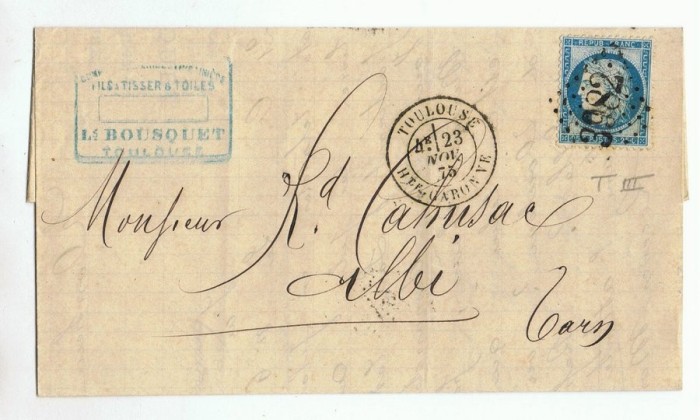 FILS A TISSER & TOILES
Ls BOUSQUET
TOULOUSE
TOULOUSE
23
NOV.
75
Hte GARONNE
REPUB. FRANC.
3982
T III
Monsieur Rd Cahusac
Albi
Tarn